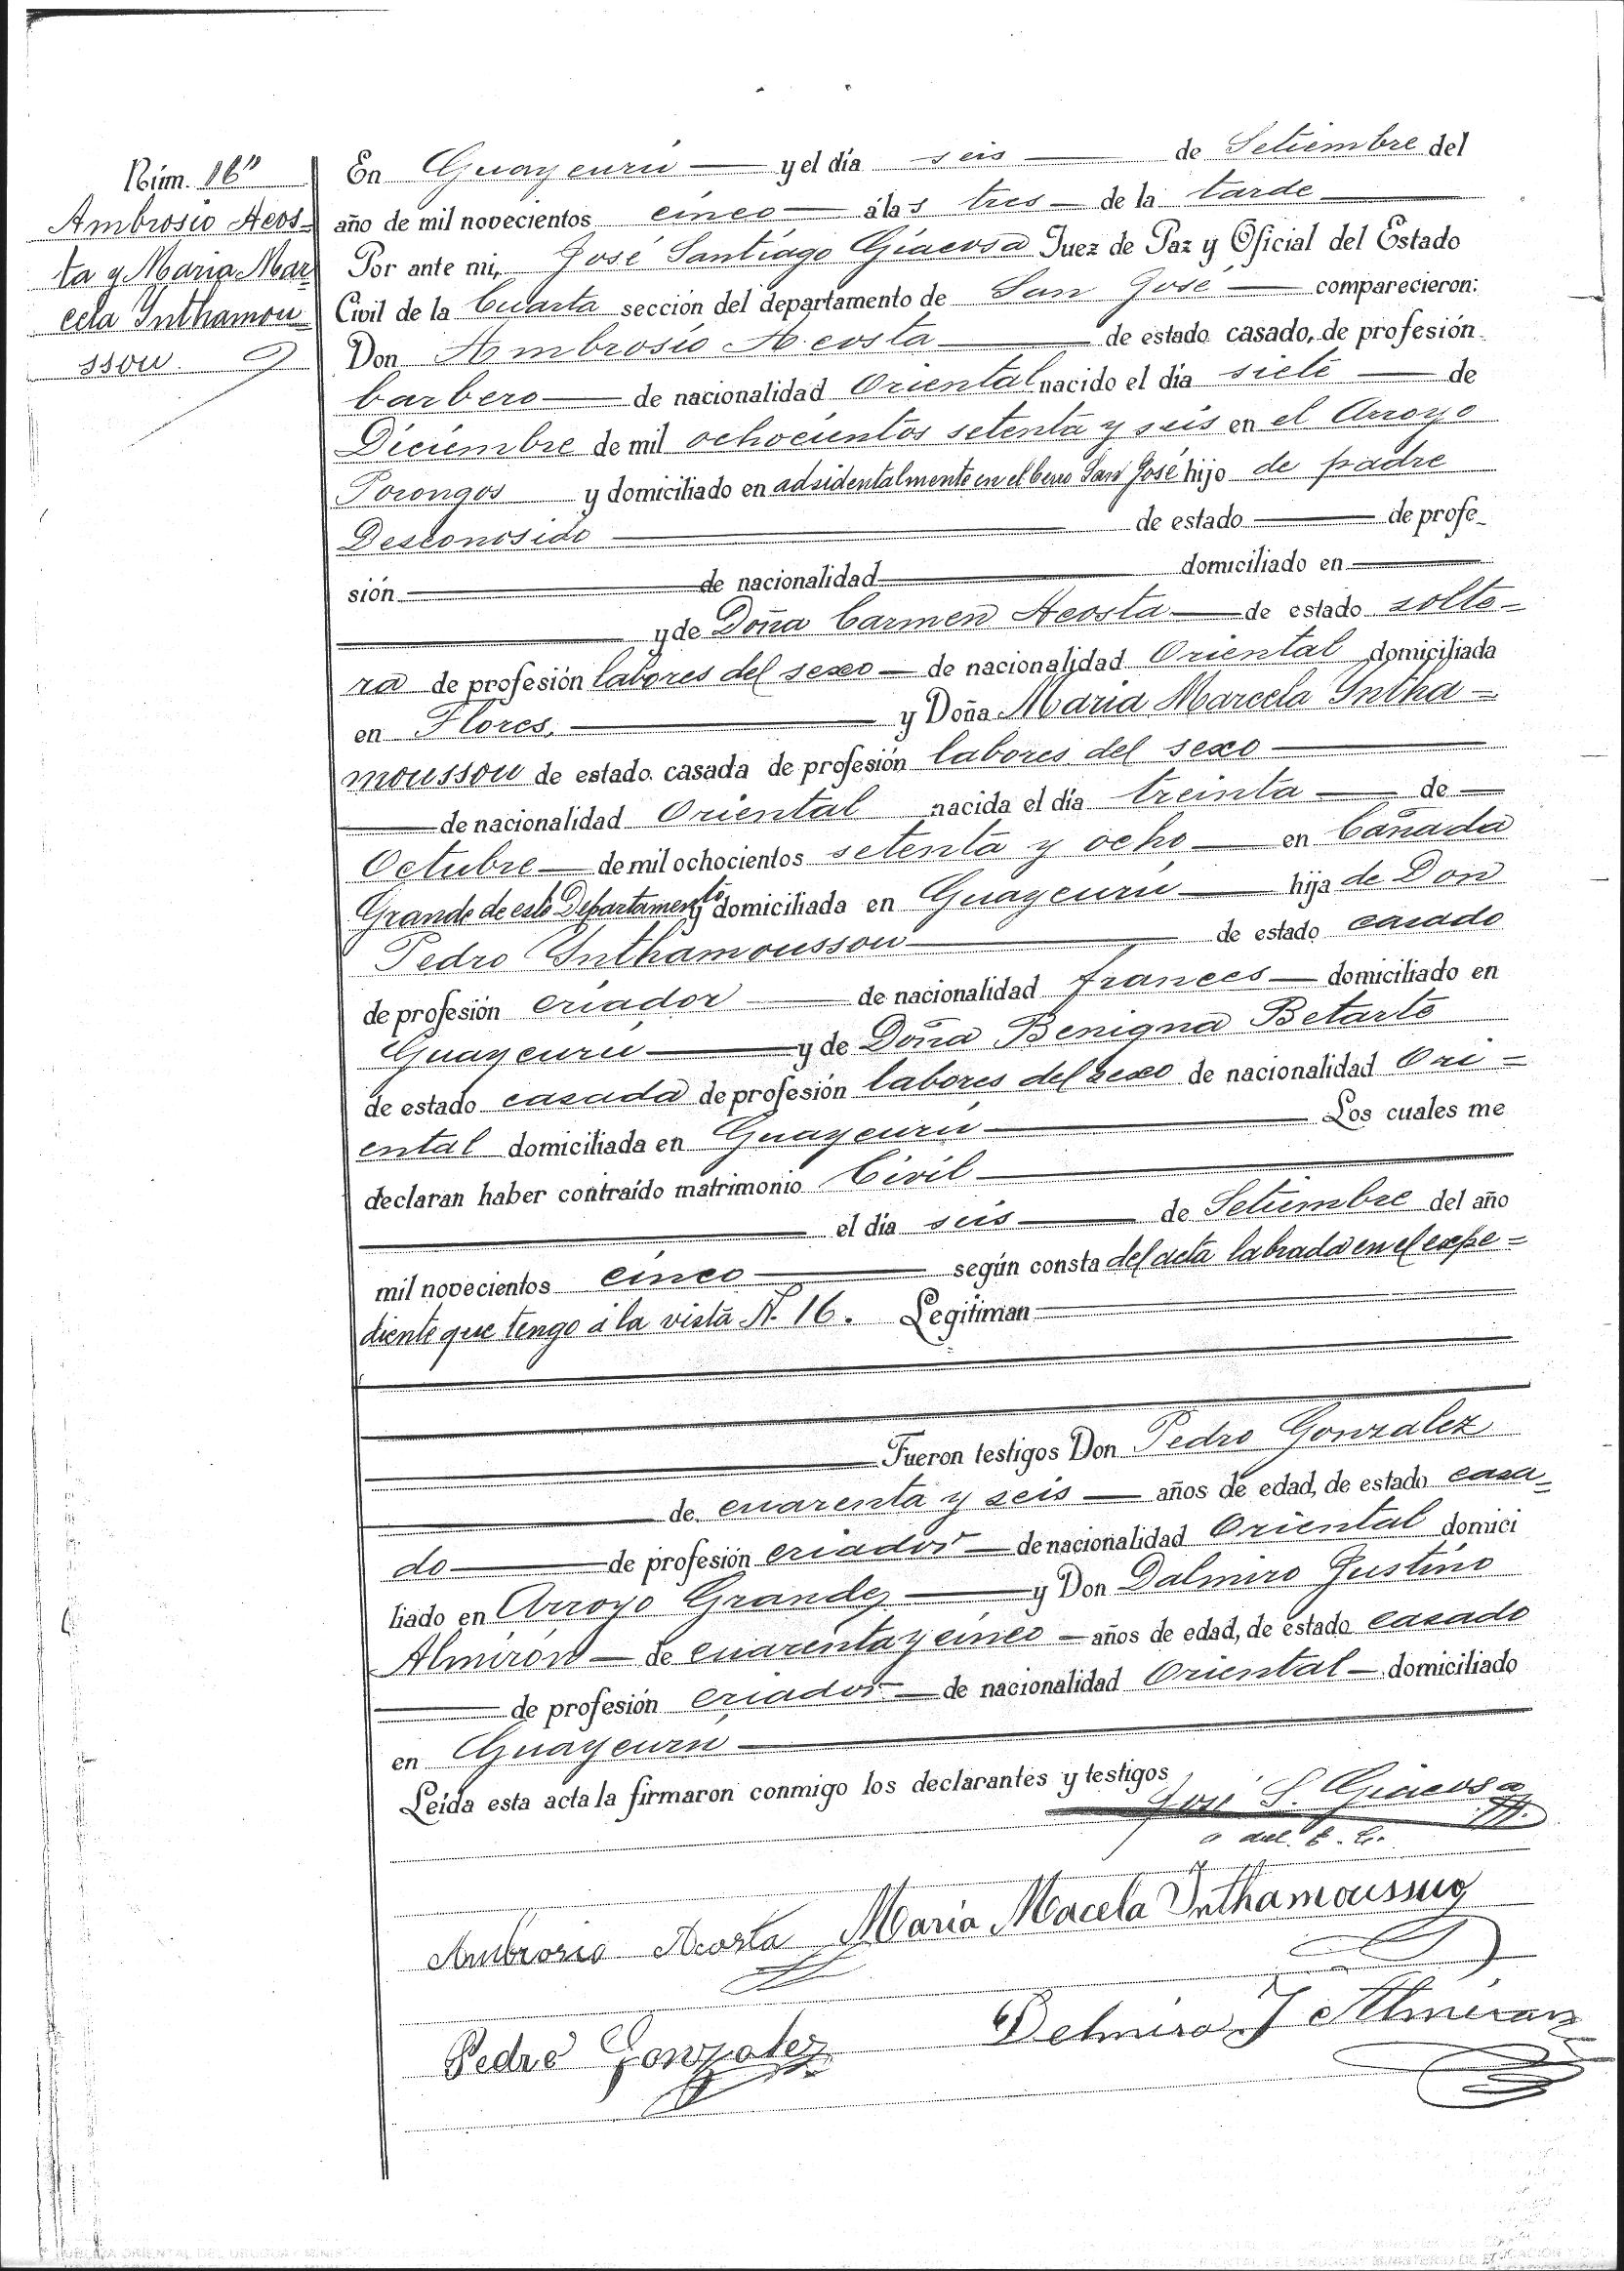 Núm. 16"
Ambrosio Acos=
ta y Maria Mar=
cela Ynthamou=
ssou.
En Guaycurú y el día seis de Setiembre del
año de mil novecientos cinco á las tres de la tarde
Por ante mi, José Santiago Giacosa Juez de Paz y Oficial del Estado
Civil de la Cuarta sección del departamento de San José comparecieron:
Don Ambrosio Acosta de estado casado, de profesión
barbero de nacionalidad Oriental nacido el día siete de
Diciembre de mil ochocientos setenta y seis en el Arroyo
Porongos y domiciliado en adsidentalmente en el Cerro San José hijo de padre
Desconosido de estado de profe-
sión de nacionalidad domiciliado en
y de Doña Carmen Acosta de estado solte=
ra de profesión labores del sexo de nacionalidad Oriental domiciliada
en Flores, y Doña Maria Marcela Yntha=
moussou de estado casada de profesión labores del sexo
de nacionalidad Oriental nacida el día treinta de
Octubre de mil ochocientos setenta y ocho en Cañada
Grande de este Departamento y domiciliada en Guaycurú hija de Don
Pedro Ynthamoussou de estado casado
de profesión criador de nacionalidad frances domiciliado en
Guaycurú y de Doña Benigna Betarte
de estado casada de profesión labores del sexo de nacionalidad Ori=
ental domiciliada en Guaycurú Los cuales me
declaran haber contraído matrimonio Civil
el día seis de Setiembre del año
mil novecientos cinco según consta del acta labrada en el espe=
diente que tengo á la vista N. 16. Legitiman
Fueron testigos Don Pedro Gonzalez
de cuarenta y seis años de edad, de estado casa=
do de profesión criador de nacionalidad Oriental domici
liado en Arroyo Grande y Don Dalmiro Justino
Almirón de cuarenta y cinco años de edad, de estado casado
de profesión criador de nacionalidad Oriental domiciliado
en Guaycurú
Leída esta acta la firmaron conmigo los declarantes y testigos
José S. Giacosa
o del E. C.
Ambrosio Acosta Maria Macela Ynthamoussuo
Pedro Gonzalez Delmiro J Almiran